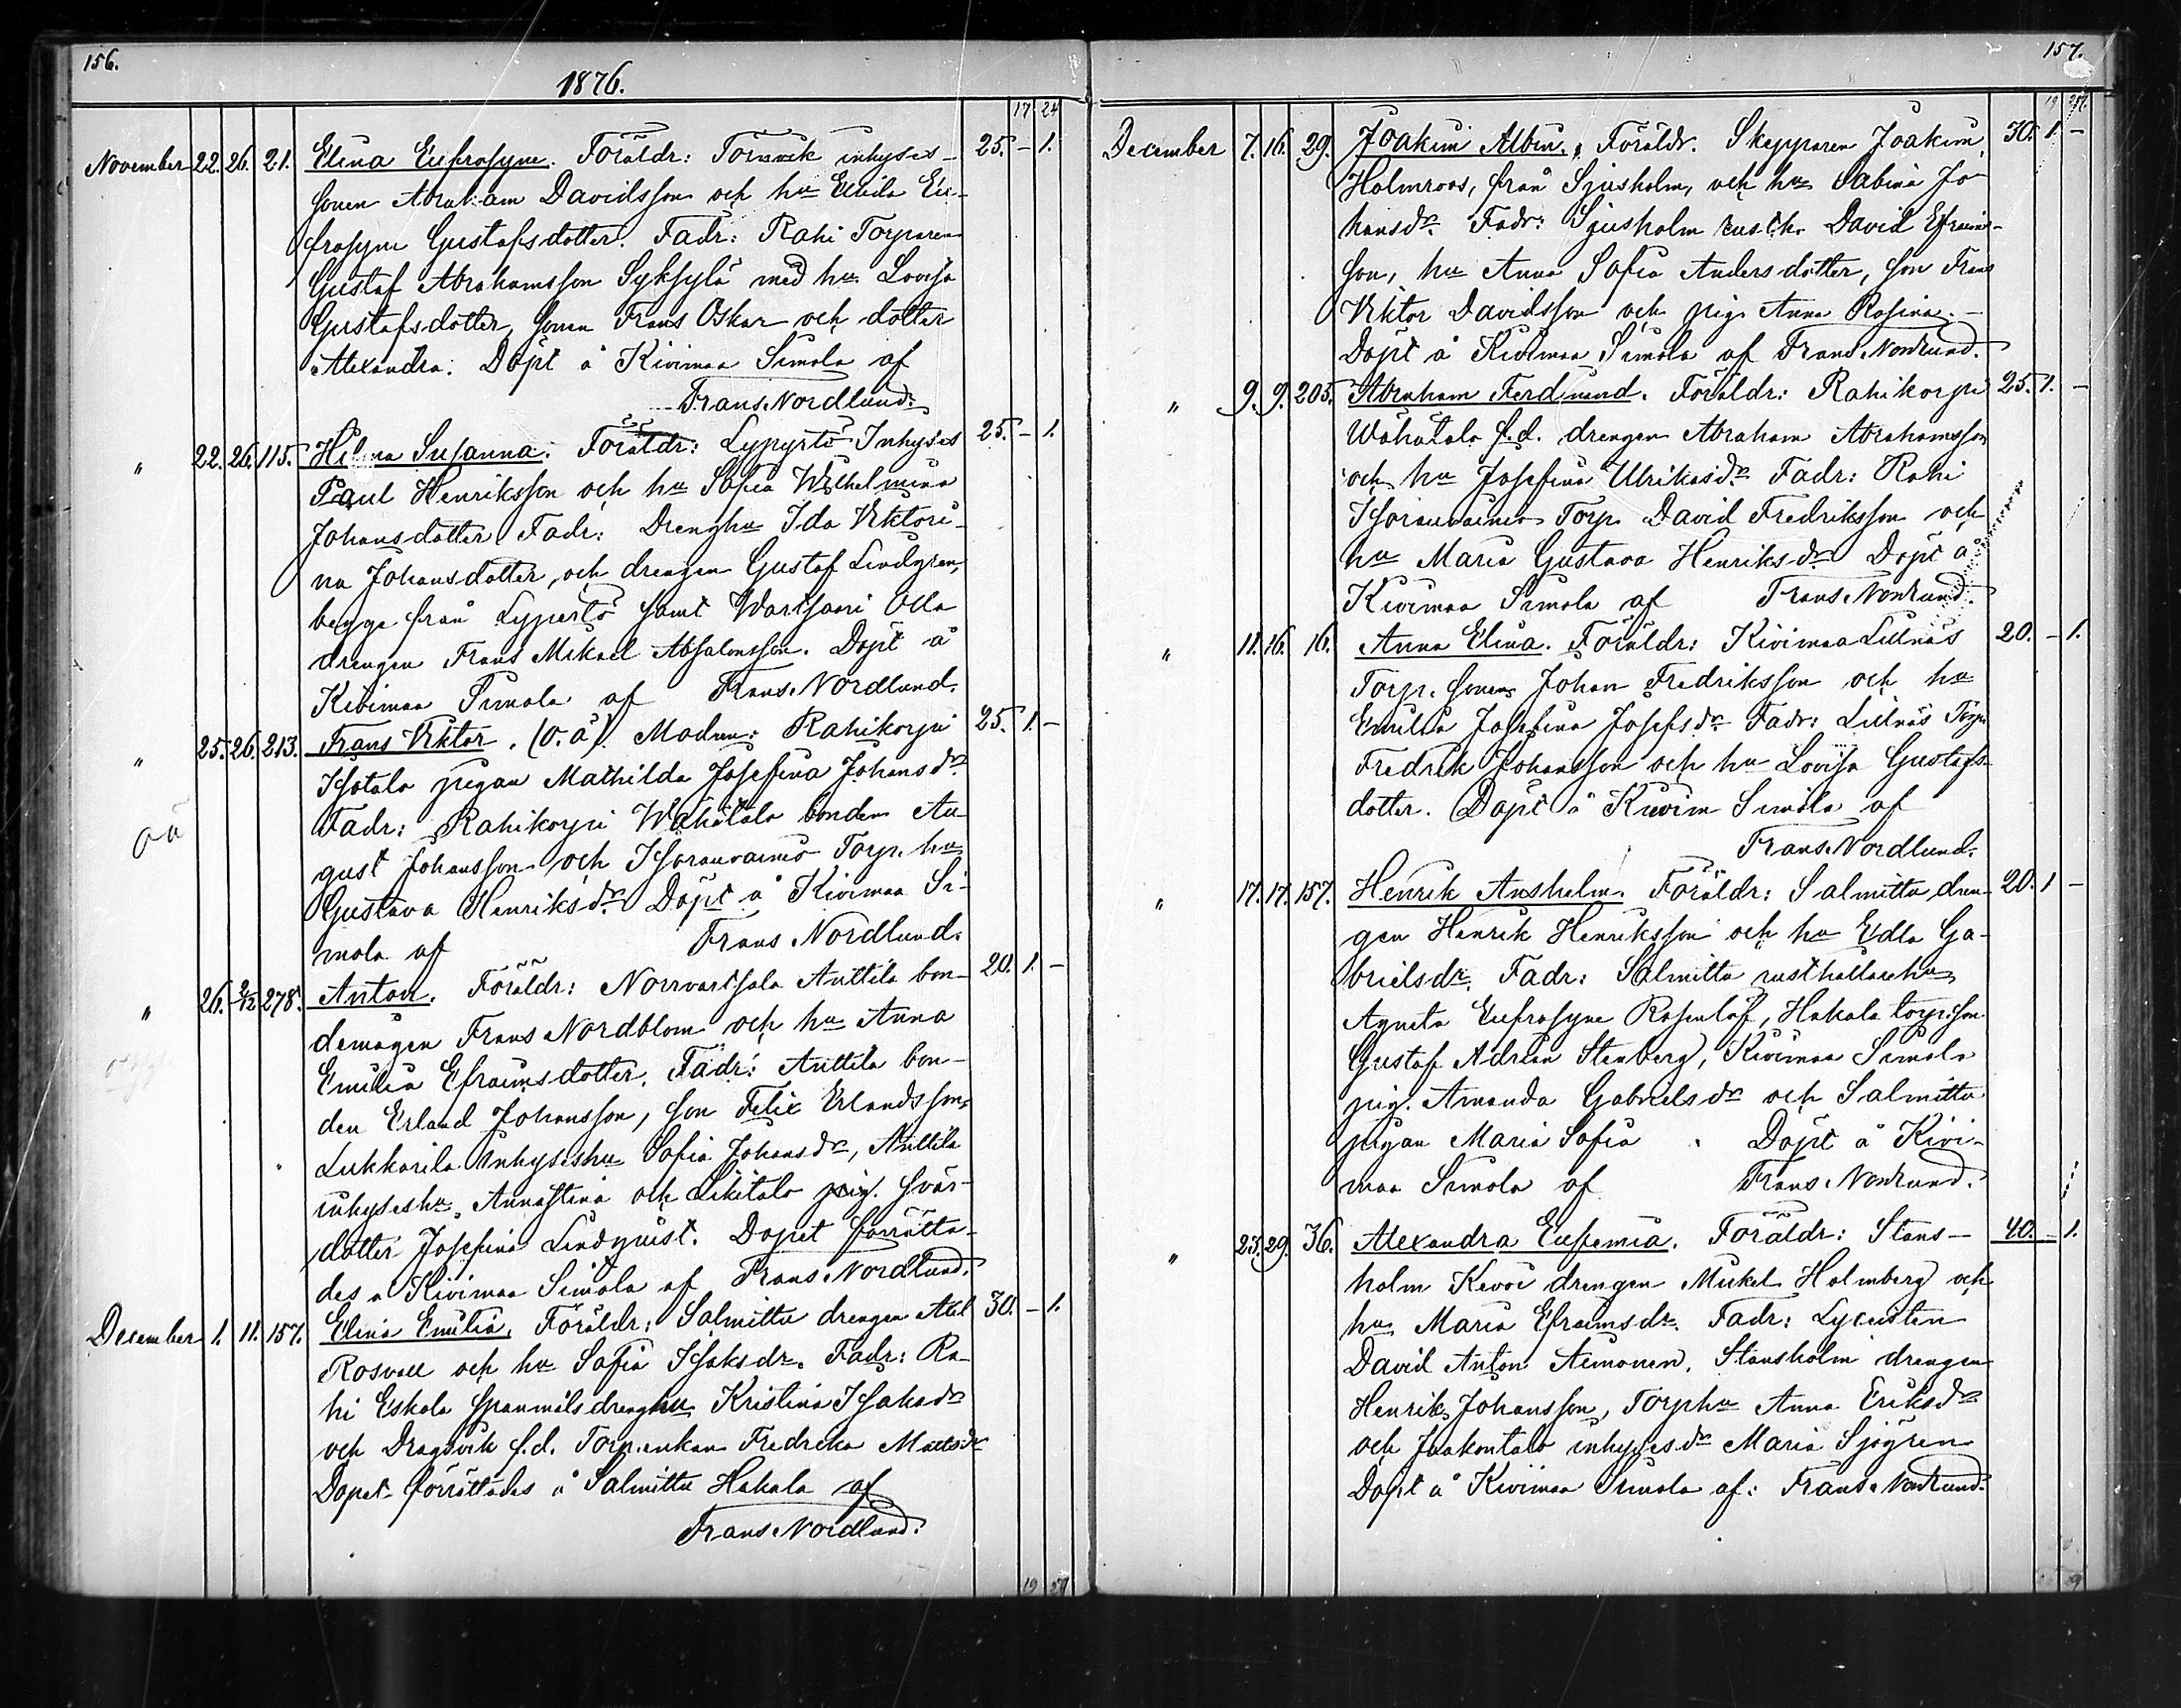 156.
1876.
17 24
November 22. 26. 21. Elina Eufrosyne. Föräldr: Torsvik inhyses- 25. - 1.
sonen Abraham Davidsson och hu Emila Eu-
frosyne Gustafsdotter. Fadr: Rahi Torparen
Gustaf Abrahamsson Syksylä med hu Lovisa
Gustafsdotter, sonen Frans Oskar och dotter
Alexandra. Döpt å Kivimaa Simola af
Frans Nordlund.
" 22. 26. 115. Helena Susanna. Föräldr: Lypyrtö Inhyses 25. - 1.
Paul Henriksson och hu Sofia Wilhelmina
Johansdotter Fadr: Drenghu Ida Viktori-
na Johansdotter, och drengen Gustaf Lindgren,
begge från Lypertö samt Wartsaari Olla
drengen Frans Mikael Absalonsson. Döpt å
Kivimaa Simola af Frans Nordlund.
" 25. 26. 213. Frans Viktor. (o.ä). Modren: Rahikorpi 25. 1. -
Isotalo pigan Mathilda Josefina Johansdr.
oä Fadr: Rahikorpi Wähätalo bonden Au-
gust Johansson och Isorauvainio Torp. hu
Gustava Henriksdr. Döpt å Kivimaa Si-
mola af Frans Nordlund.
" 26. 2/12 278. Anton. Föräldr: Norrvartsala Anttila bon- 20. 1. -
demågen Frans Nordblom och hu Anna
Emilia Efraimsdotter. Fadr: Anttila bon-
den Erland Johansson, son Felix Erlandsson,
Lukkarila inhyseshu Sofia Johansdr, Anttila
inhyseshu Annastina och Likitalo pig. svär-
dotter Josefina Lindquist. Dopet förrätta-
des å Kivimaa Simola af Frans Nordlund.
December 1. 11. 157. Elina Emilia. Föräldr: Salmittu drengen Abel 30. - 1.
Rosvall och hu Sofia Isaksdr. Fadr: Ra-
hi Eskola spanmålsdrenghu Kristina Isaksdr
och Dragsvik f.d. Torp.enkan Fredrika Mattsdr
Dopet förrättades å Salmittu Hakala af
Frans Nordlund.
19 27
157.
19 27.
December 7. 16. 29. Joakim Albin. Föräldr. Skepparen Joakim 30. 1. -
Holmroos, från Sjusholm, och hu Sabina Jo-
hansdr. Fadr: Sjusholm rusth. David Efraims-
son, hu Anna Sofia Andersdotter, son Frans
Viktor Davidsson och pig. Anna Rosina. -
Döpt å Kivimaa Simola af Frans Nordlund.
" 9. 9. 205. Abraham Ferdinand. Föräldr: Rahikorpi 25. 1. -
Wähätalo f.d. drengen Abraham Abrahamsson
och hu Josefina Ulrikasdr. Fadr: Rahi
Isorauvainio Torp. David Fredriksson och
hu Maria Gustava Henriksdr. Döpt å
Kivimaa Simola af Frans Nordlund.
" 11. 16. 16. Anna Elina. Föräldr: Kivimaa Lillnäs 20. - 1.
Torp. sonen Johan Fredriksson och hu
Emilia Josefina Josefsdr. Fadr: Lillnäs Torp.
Fredrik Johansson och hu Lovisa Gustafs-
dotter. Döpt å Kivim Simola af
Frans Nordlund.
" 17. 17. 157. Henrik Anshelm. Föräldr: Salmittu dren- 20. 1 -
gen Henrik Henriksson och hu Edla Ga-
brielsdr. Fadr: Salmittu rusthållarehu
Agneta Eufrosyne Rosenlöf, Hakala torp.son
Gustaf Adrian Stenberg, Kivimaa Simola
pig. Amanda Gabrielsdr och Salmittu
pigan Maria Sofia . Döpt å Kivi-
maa Simola af Frans Nordlund.
" 23. 29. 36. Alexandra Eufemia. Föräldr: Stans- 40. - 1.
holm Kevoi drengen Mickel Holmberg och
hu Maria Efraimsdr. Fadr: Lyceisten
David Anton Aimonen, Stansholm drengen
Henrik Johansson, Torphu Anna Eriksdr
och Jaakontalo inhysesdr Maria Sjögren
Döpt å Kivimaa Simola af: Frans Nordlund.